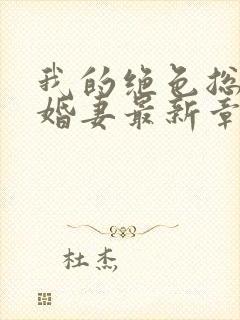 我的绝色总
婚妻最新章
杜杰